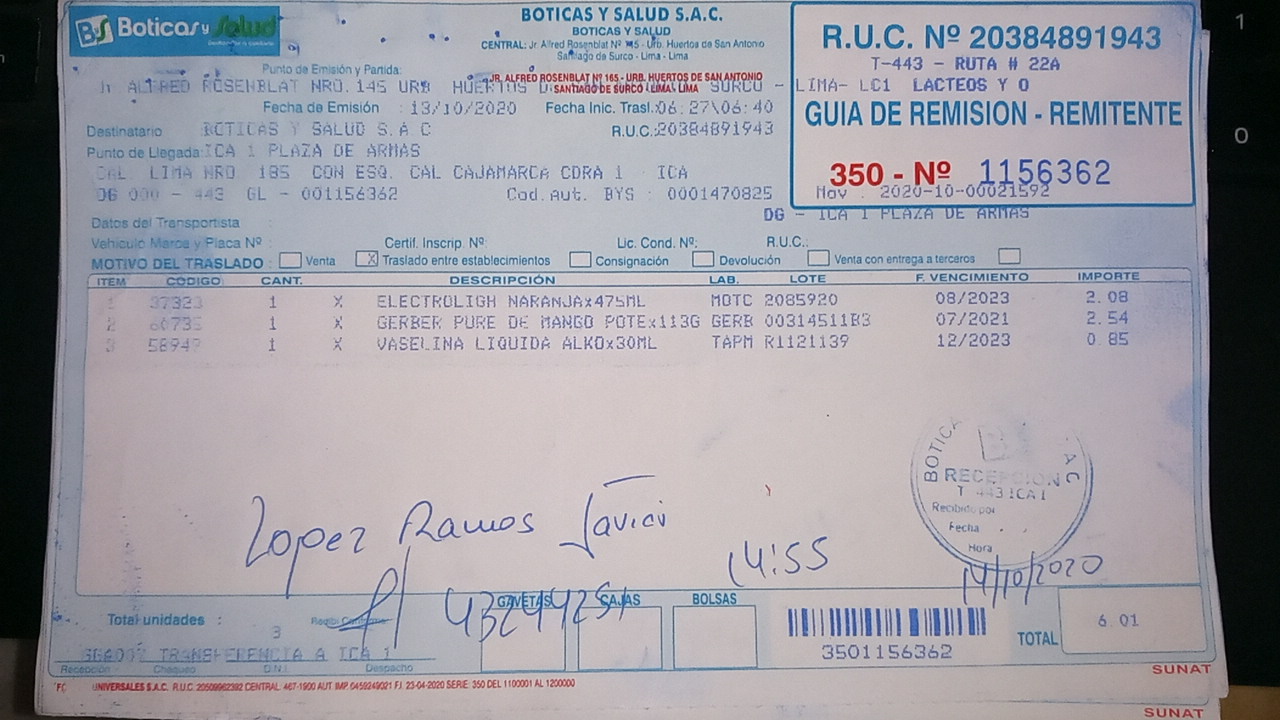 Boticas y Salud
BOTICAS Y SALUD S.A.C.
BOTICAS Y SALUD
CENTRAL: Jr. Alfred Rosenblat Nº 145 - Urb. Huertos de San Antonio
Santiago de Surco - Lima - Lima
JR. ALFRED ROSENBLAT Nº 165 - URB. HUERTOS DE SAN ANTONIO
SANTIAGO DE SURCO - LIMA - LIMA
R.U.C. Nº 20384891943
T-443 - RUTA # 22A
LACTEOS Y O
GUIA DE REMISION - REMITENTE
350 - Nº 1156362
Nov. 2020-10-00021592
Punto de Emisión y Partida:
Jr ALFRED ROSENBLAT NRO.145 URB HUERTOS D SURCO - LIMA- LC1
Fecha de Emisión : 13/10/2020 Fecha Inic. Trasl.:06:27\06:40
Destinatario BOTICAS Y SALUD S.A C R.U.C.:20384891943
Punto de Llegada:ICA 1 PLAZA DE ARMAS
CAL LIMA NRO 185 CON ESQ. CAL CAJAMARCA CDRA 1 ICA
DG 000 - 443 GL - 001156362 Cod.Aut. BYS : 0001470825
DG - ICA 1 PLAZA DE ARMAS
Datos del Transportista :
Vehículo Marca y Placa Nº : Certif. Inscrip. Nº: Lic. Cond. Nº: R.U.C.:
MOTIVO DEL TRASLADO : Venta X Traslado entre establecimientos Consignación Devolución Venta con entrega a terceros
ITEM CODIGO CANT. DESCRIPCIÓN LAB. LOTE F. VENCIMIENTO IMPORTE
1 37323 1 X ELECTROLIGH NARANJAx475ML MDTC 2085920 08/2023 2.08
2 60735 1 X GERBER PURE DE MANGO POTEx113G GERB 00314511B3 07/2021 2.54
3 58947 1 X VASELINA LIQUIDA ALKOx30ML TAPM R1121139 12/2023 0 85
BOTICA
AC
RECEPCION
T 443 ICA I
Recibido por
Fecha
Hora
Lopez Ramos Javier
14:55
14/10/2020
Total unidades : 3
Recibí Conforme
GAVETAS CAJAS BOLSAS
3501156362
TOTAL 6 01
SGA007 TRANSFERENCIA A ICA 1
Recepción Chequeo D.N.I. Despacho
SUNAT
UNIVERSALES S.A.C. R.U.C. 20509962392 CENTRAL: 467-1900 AUT IMP. 0459249021 F.I. 23-04-2020 SERIE: 350 DEL 1100001 AL 1200000
SUNAT
1
0